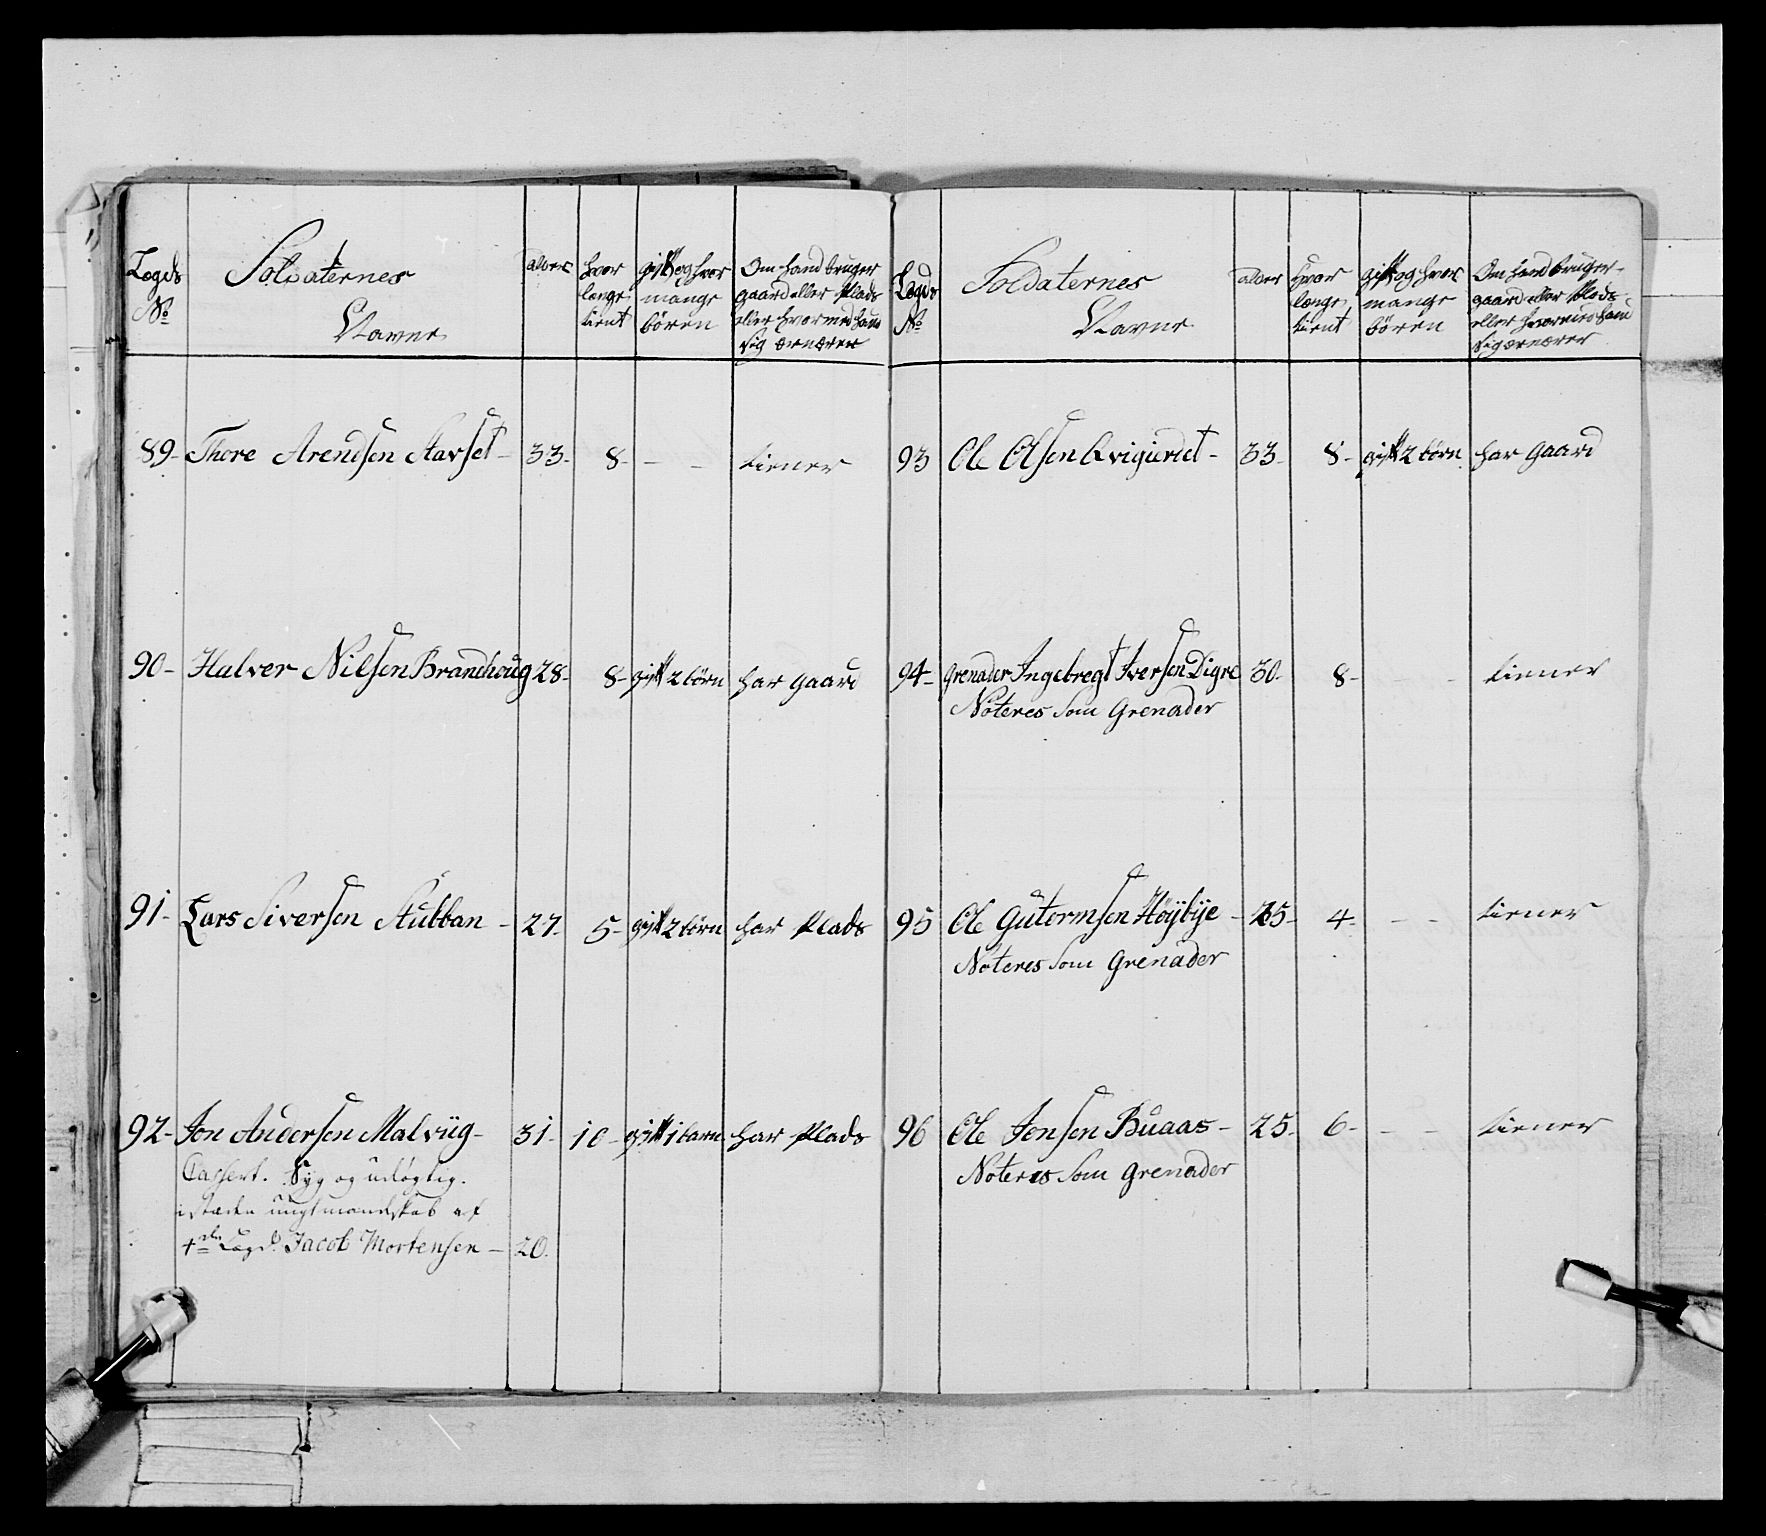 Legds No Soldaternes Navne alder hvor længe tient gift og hvor mange bören Om hand bruger gaard eller Plads eller hvormed hand sig ærnærer
89- Thore Arendsen Stavset - 33- 8- - - tiener
90- Halver Nilsen Brandhoug 28- 8- gift 2 börn har gaard
91- Lars Siversen Stubban - 27- 5- gift 2 börn har Plads
92- Jon Andersen Malvüg - 31- 10- gift 1 barn har Plads
Cassert. Syg og udögtig.
istæden ungt mandskab af
Lægd. Jacob Mortensen - 20.
Legds No Soldaternes Navne alder hvor længe tient gift og hvor mange bören Om hand bruger gaard eller Plads eller hvormed hand sig ærnærer
93 Ole Olsen Qvigürdet - 33- 8- gift 2 börn har gaard
94- Grenader Ingebregt Iversen Digre 30- 8- - - tiener
Noteres som Grenader
95 Ole Gutormsen Höÿbÿe - 25- 4- - - tiener
Noteres som Grenader
96 Ole Jonsen Buaas - 25- 6- - - tiener
Noteres som Grenader